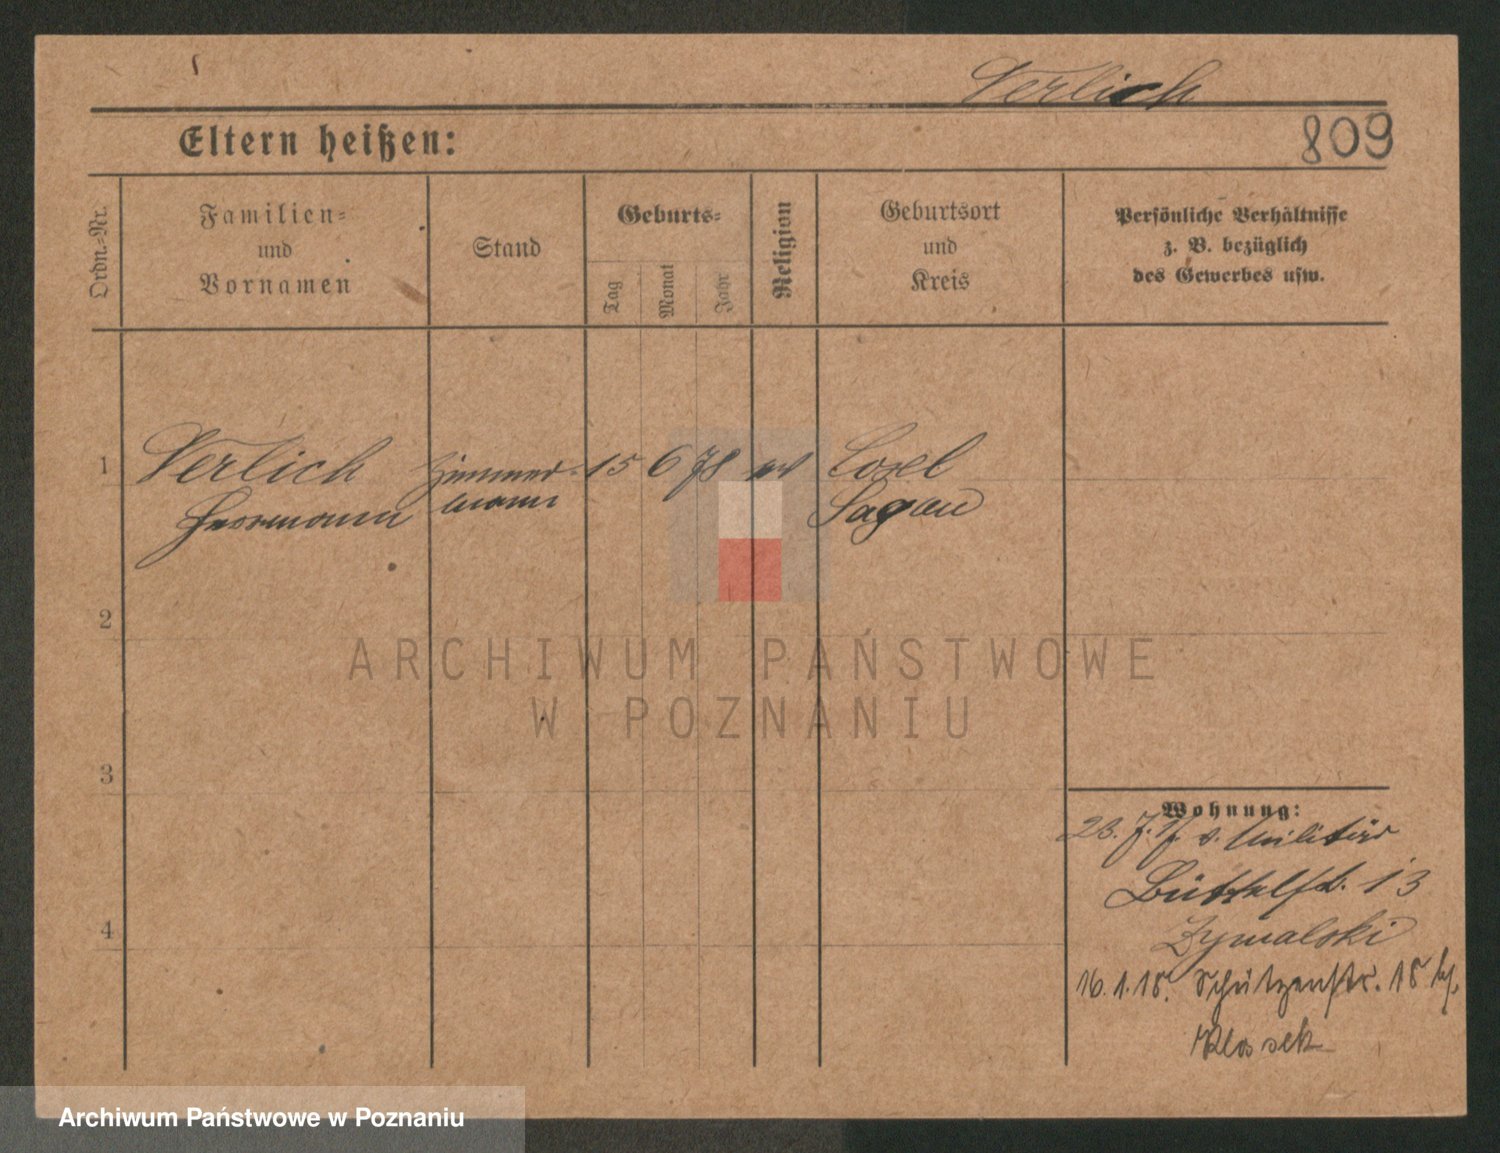 Verlich
Eltern heißen:
809
Ordn.-Nr.
Familien-
und
Vornamen
Stand
Geburts-
Tag
Monat
Jahr
Religion
Geburtsort
und
Kreis
Persönliche Verhältnisse
z. B. bezüglich
des Gewerbes usw.
1
Verlich
Herrmann
Zimmer-
mann
15
6
78
Cosel
Sagan
2
3
4
Wohnung:
Militär
Büttelstr. 13
Zymalski
16.1.18. Schützenstr. 18
Klossek
ARCHIWUM PAŃSTWOWE
W POZNANIU
Archiwum Państwowe w Poznaniu